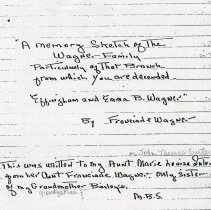 "A memory Sketch of The
Wagner - Family
Particulary of that Branch
from which you are decended
"Effingham and Emma B. Wagner"
By Franciade Wagner.
This was written to my Aunt Marie Louise
from her Aunt Franciade Wagner. Only Sister
of my Grandmother
M.B.S.